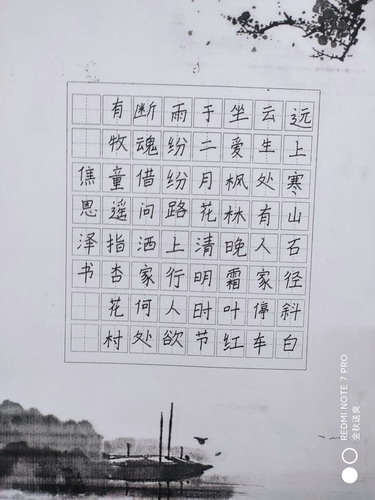 远上寒山石径斜白
云生处有人家停车
坐爱枫林晚霜叶红
于二月花清明时节
雨纷纷路上行人欲
断魂借问洒家何处
有牧童遥指杏花村
焦恩泽书
REDMI NOTE 7 PRO
金秋送爽